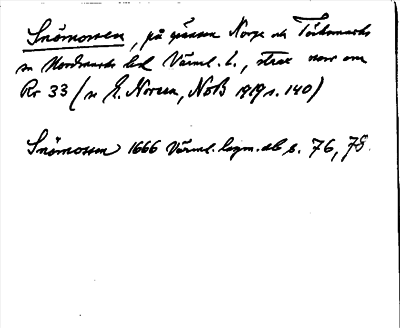 Snömossen, på gränsen Norge och Töcksmarks
sn Nordmarks hd Värml. l., strax norr om
Rr 33 (se E. Noreen, NoB 1919 s. 140)
Snömossen 1666 Värml. legm. ab s. 76, 78.